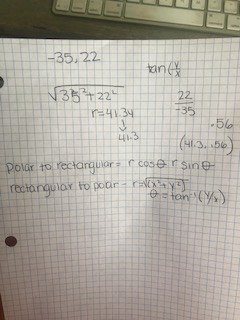 -35, 22
tan(y/x
√35²+22²
22/-35
r=41.34
↓
41.3
.56
(41.3, .56)
polar to rectangular= r cosθ r sinθ
rectangular to polar - r=√(x²+y²)
θ=tan⁻¹(y/x)